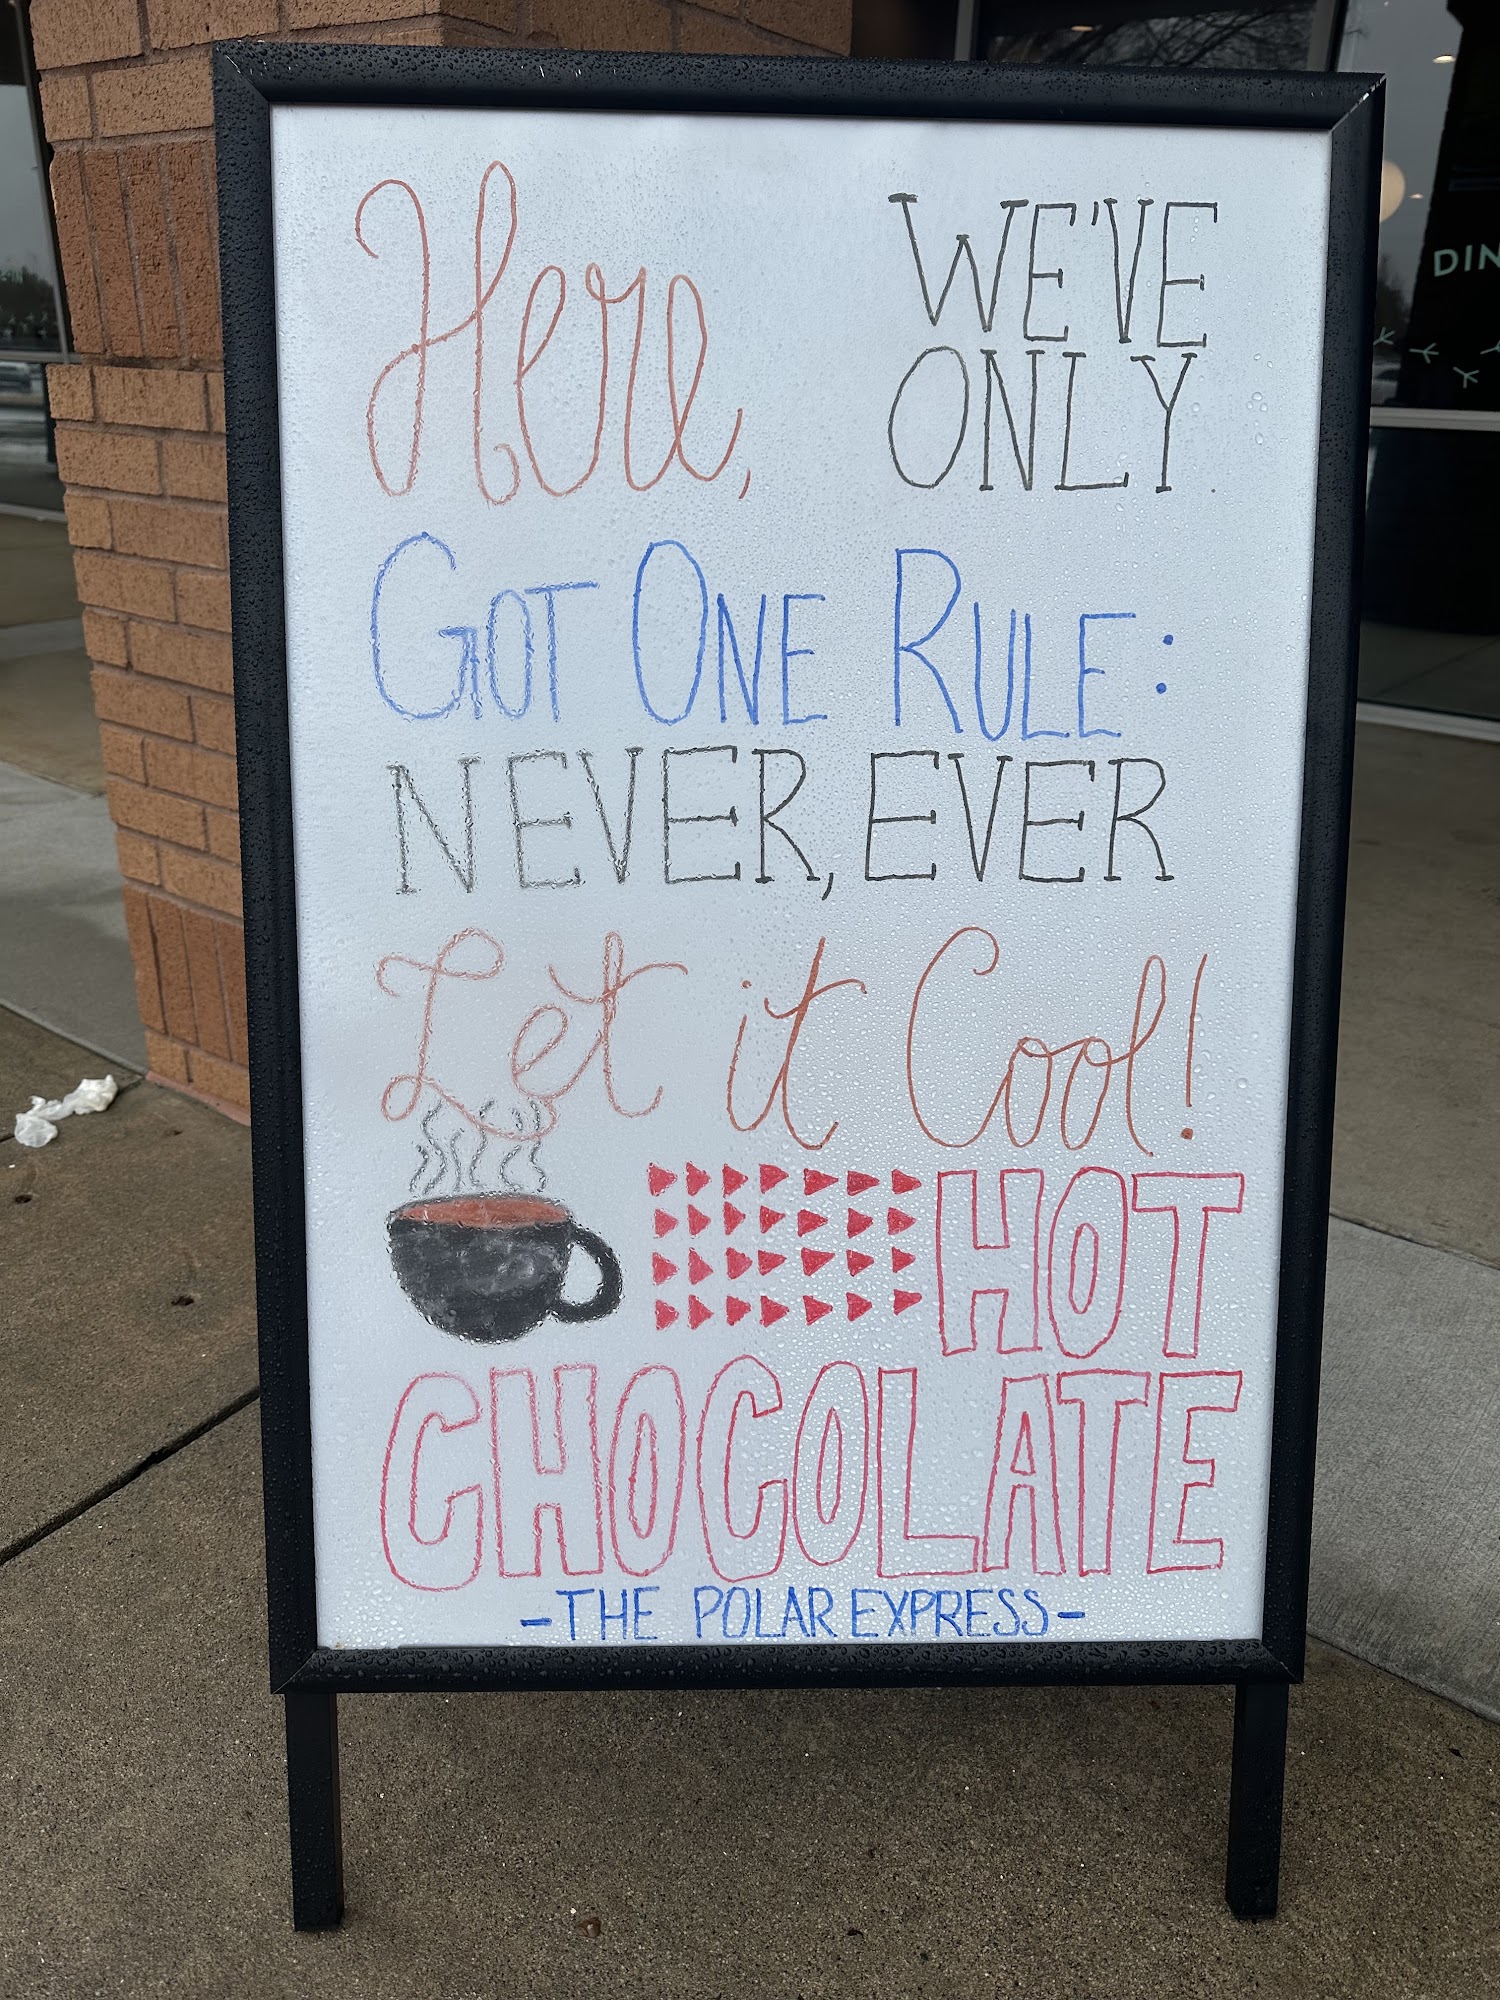 Here, WE'VE
ONLY
GOT ONE RULE:
NEVER, EVER
Let it Cool!
HOT
CHOCOLATE
-THE POLAR EXPRESS-
DIN